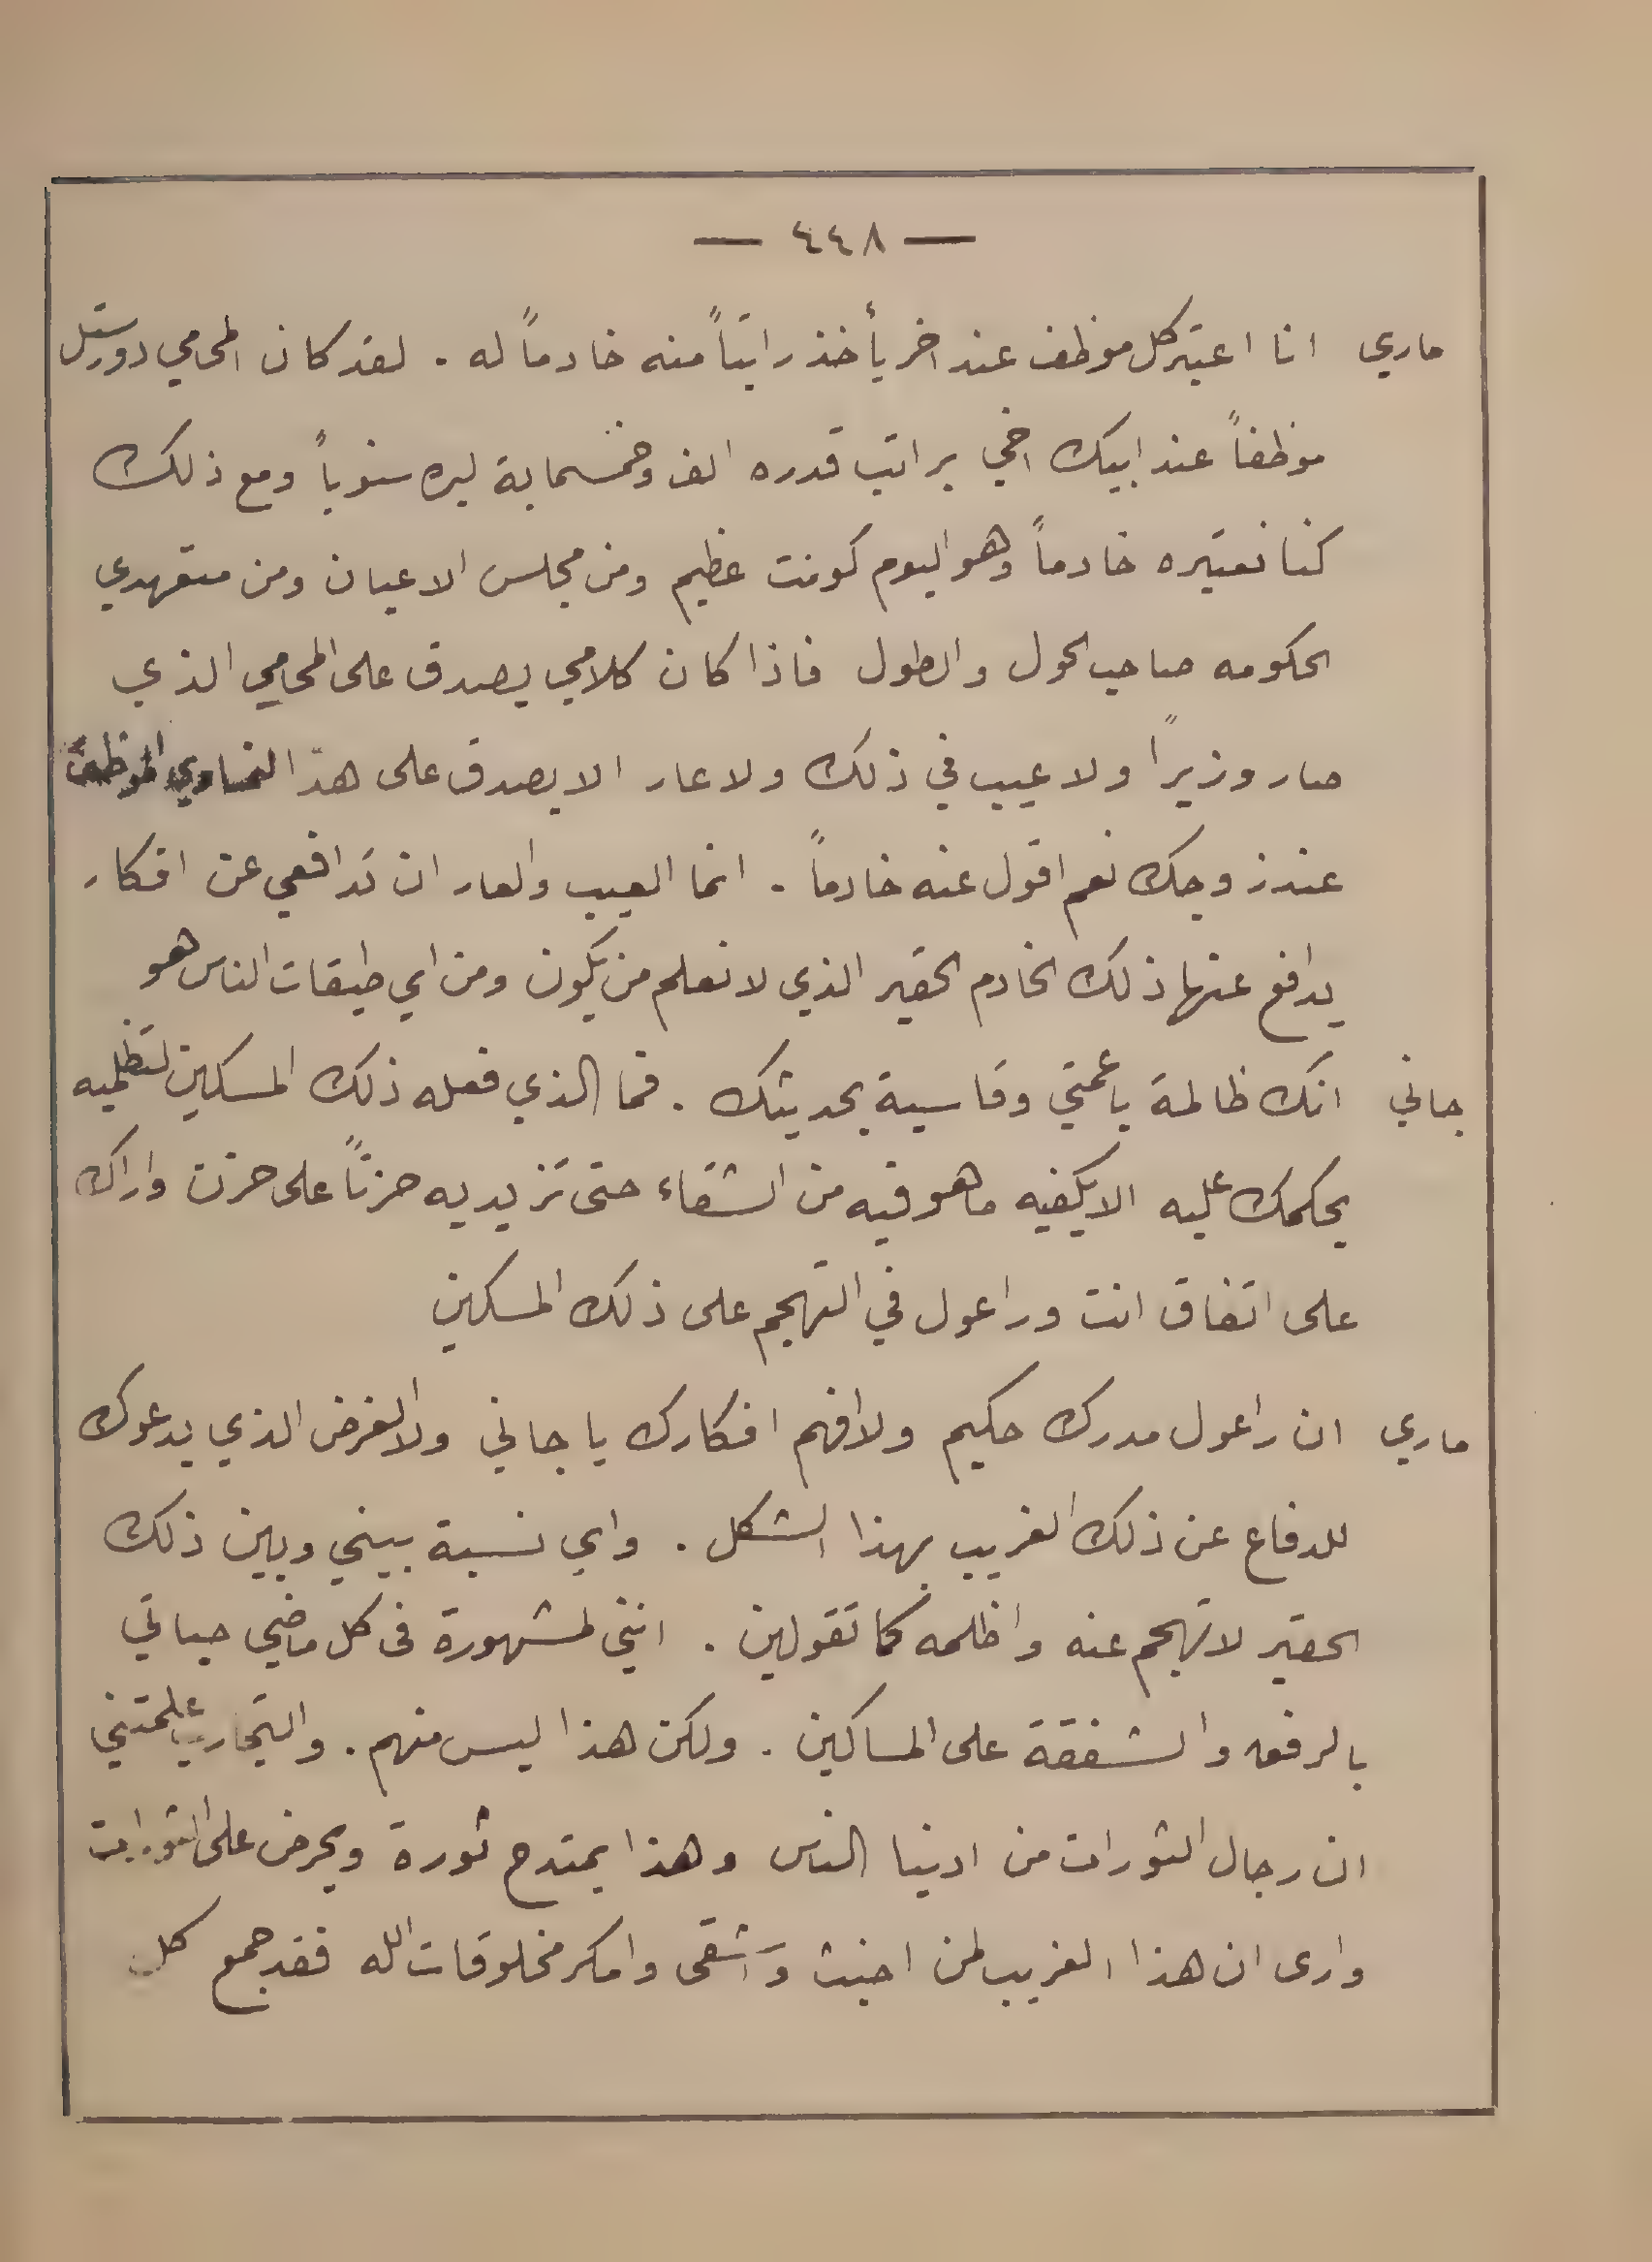 — ٤٤٨ —
ماري انا اعتبر كل موظف عند اخر يأخذ راتباً منه خادماً له . لقد كان المحامي دورستل
موظفاً عند ابيك اخي براتب قدره الف وخمسماية ليره سنوياً ومع ذلك
كنا نعتبره خادماً وهو اليوم كونت عظيم ومن مجلس الاعيان ومن متعهدي
الحكومه صاحب الحول والطول فاذا كان كلامي يصدق على المحامي الذي
صار وزيراً ولا عيب في ذلك ولا عار الا يصدق على هذا النمساوي الموظف
عند زوجك نعم اقول عنه خادماً . انما العيب والعار ان تدافعي عن افكار
يدافع عنها ذلك الخادم الحقير الذي لا نعلم من يكون ومن اي طبقات الناس هو
جاني انك ظالمة يا عمتي وقاسية بحديثك . فما الذي فعله ذلك المسكين لتظلميه
بحكمك عليه الا يكفيه ما هو فيه من الشقاء حتى تزيديه حزناً على حزن واراك
على اتفاق انت وراعول في التهجم على ذلك المسكين
ماري ان راعول مدرك حكيم ولا افهم افكارك يا جاني ولا الغرض الذي يدعوك
للدفاع عن ذلك الغريب بهذا الشكل . واي نسبة بيني وبين ذلك
الحقير لاتهجم عنه واظلمه كما تقولين . انني لمشهورة في كل ماضي حياتي
بالرفق والشفقة على المساكين . ولكن هذا ليس منهم . والتجارب علمتني
ان رجال الثورات من ادنيا الناس وهذا يمتدح ثورة ويحرض على الثورات
وارى ان هذا الغريب لمن اخبث وَاشقى وامكر مخلوقات الله فقد جمع كل